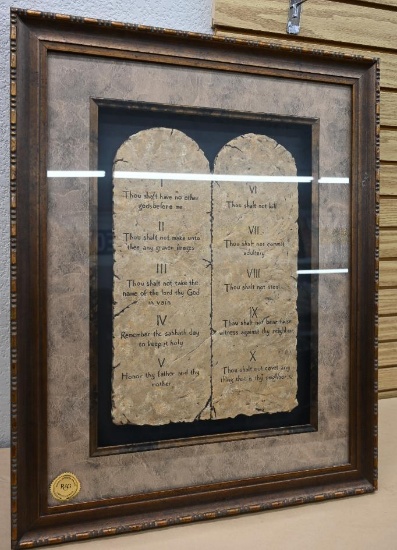 I
Thou shalt have no other
gods before me
II
Thou shalt not make unto
thee any graven images
III
Thou shalt not take the
name of the lord thy God
in vain
IV
Remember the sabbath day
to keep it holy
V
Honor thy father and thy
mother
VI
Thou shalt not kill
VII
Thou shalt not commit
adultery
VIII
Thou shalt not steal
IX
Thou shalt not bear false
witness against thy neighbor
X
Thou shalt not covet any
thing that is thy neighbor's